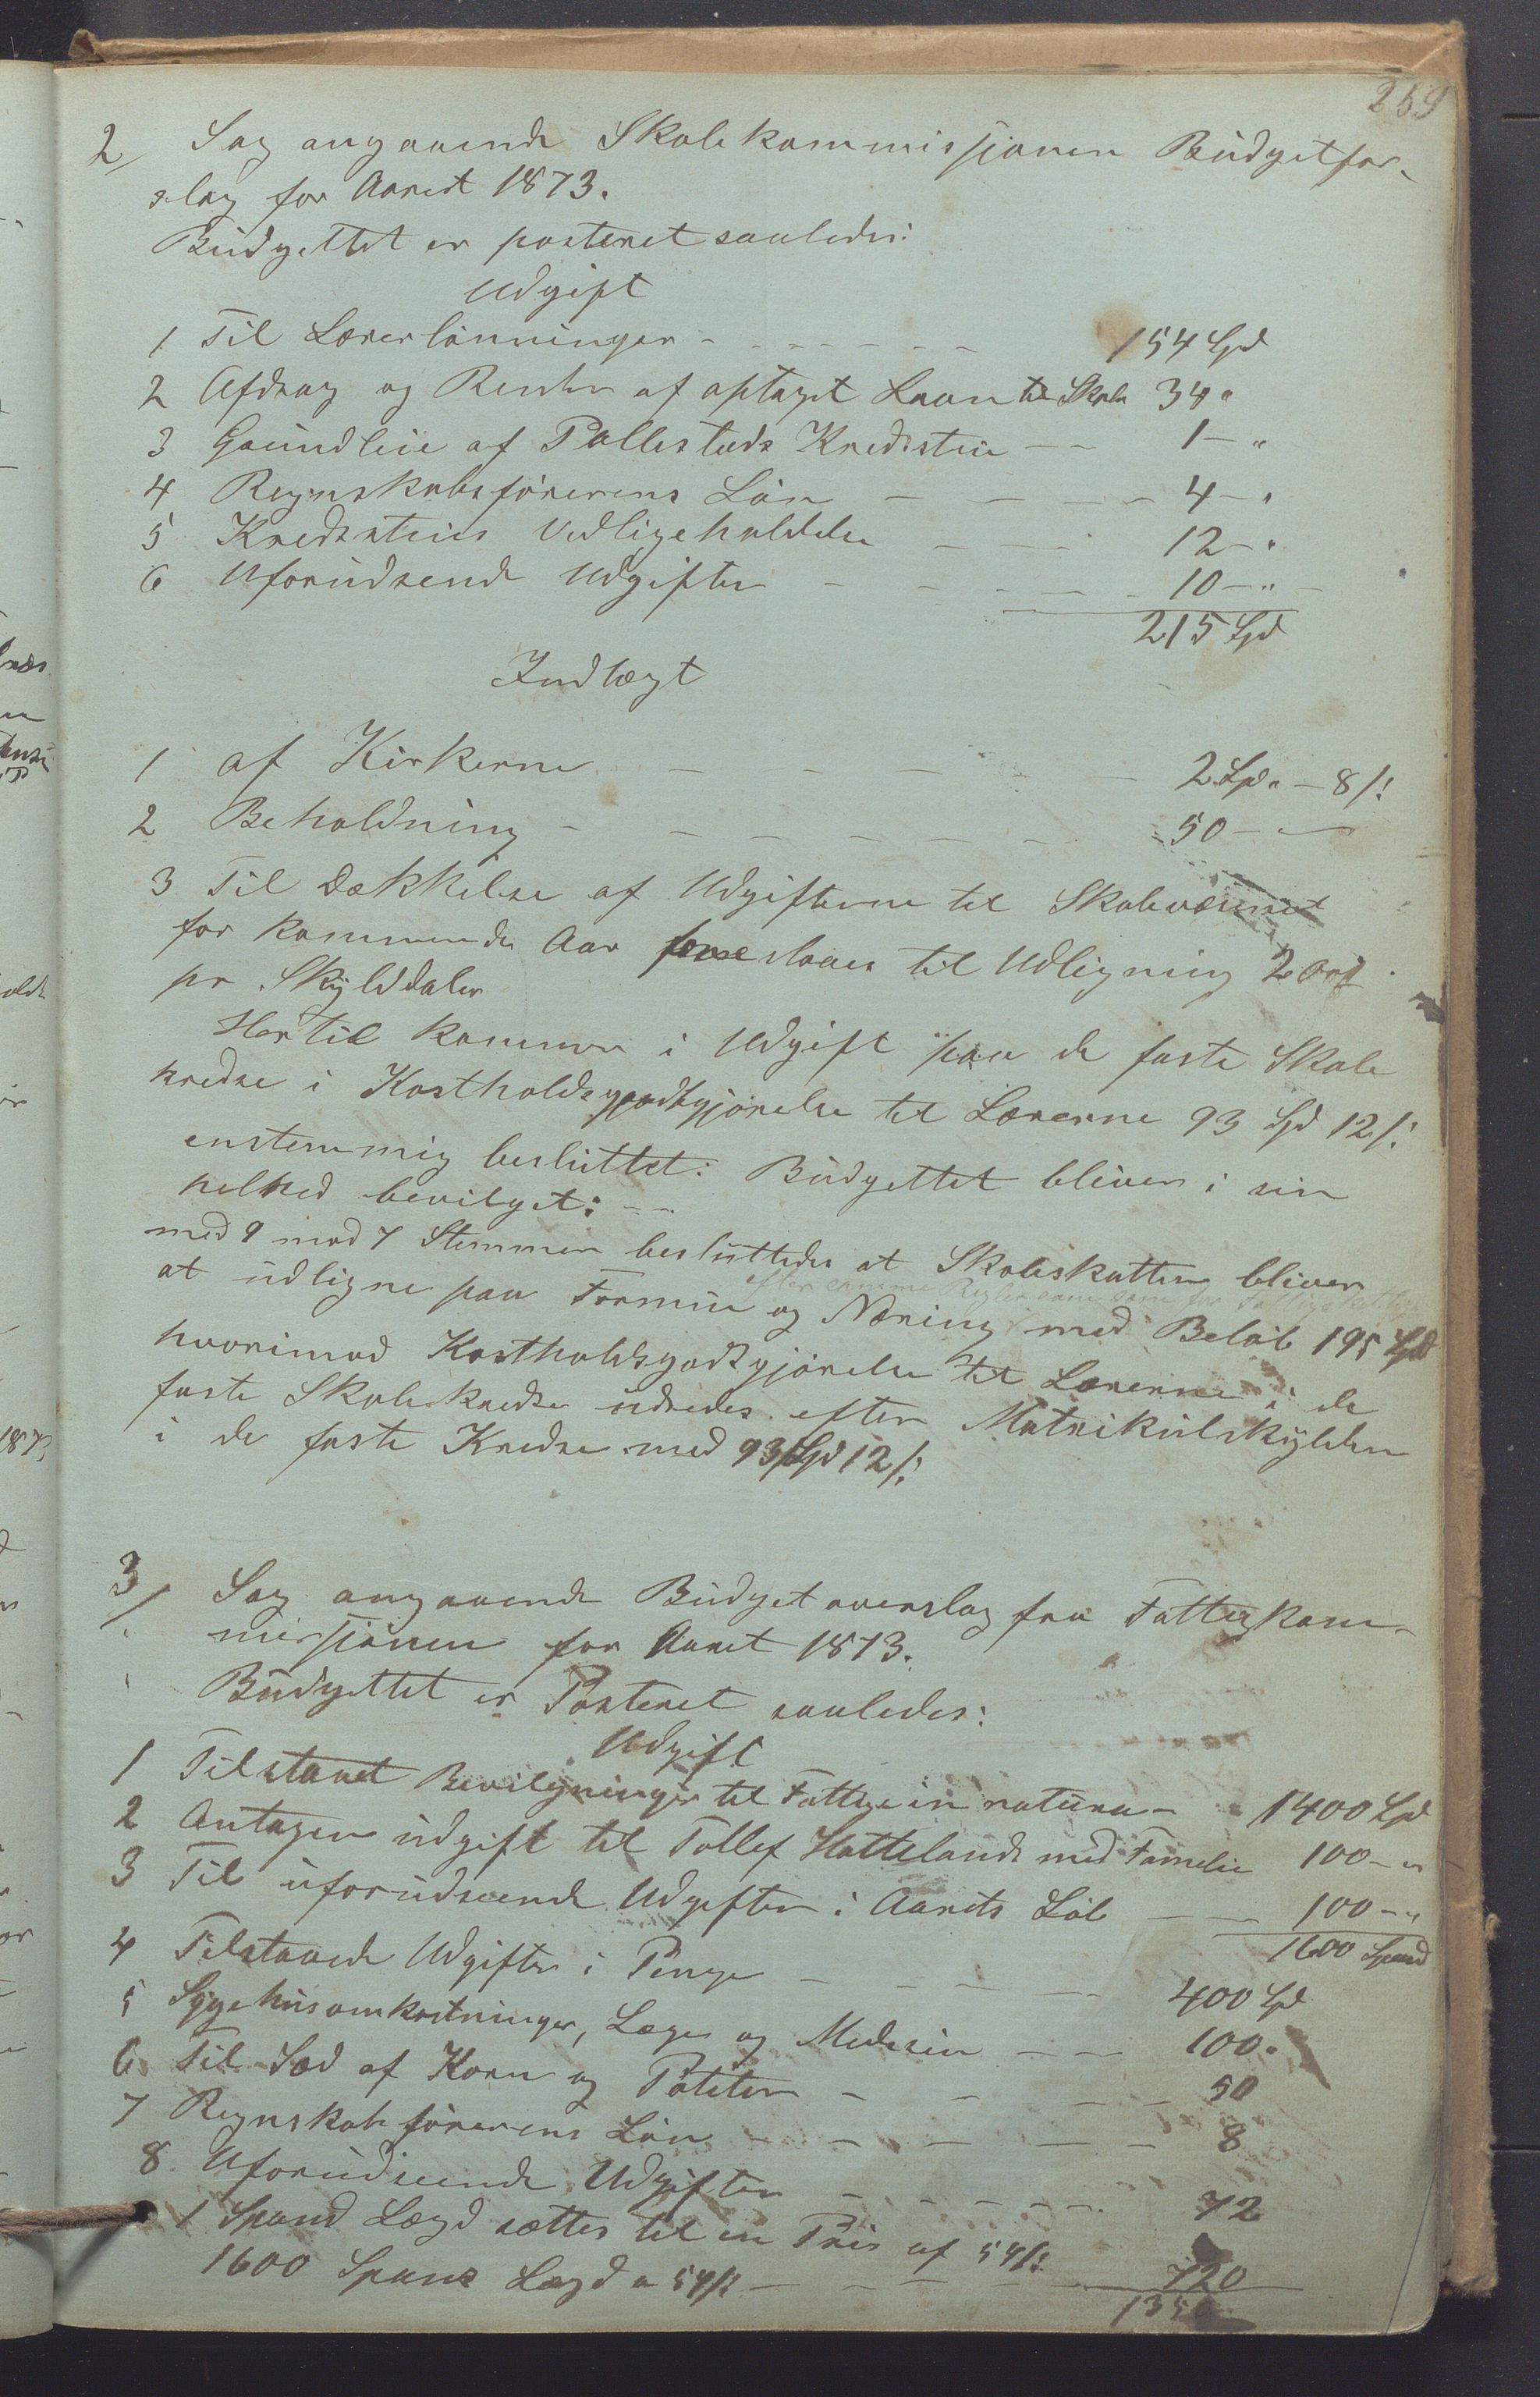 269
2/ Sag angaaende Skolekommissjonen Budgetfor-
slag for Aaret 1873.
Budgettet er posteret saaledes:
Udgift
1 Til Lærerlønninger - - - - - - 154 Spd
2 Afdrag og Renter af optaget Laan til Skole 34 "
3 Grundleie af Pollestads Kredsstue - - 1 - "
4 Regnskabsførerens Løn - - - - 4 - "
5 Kredsstuers Vedligeholdelse - - 12 - "
6 Uforudseende Udgifter - - - - - 10 - " -
215 Spd
Indtægt
1 af Kirkerne - - - - 2 Spd. - 8 /:
2 Beholdning - - - - - - - 50 - -
3 Til Dækkelse af Udgifterne til Skolevæsenet
for kommende Aar foreslaaes til Udligning 2 Ort
pr Skylddaler
Hertil kommer i Udgift paa de faste Skole
kredse i Kostholdsgodtgjørelse til Lærerne 93 Spd 12 /:
enstemmig besluttet: Budgettet bliver i sin
helhed bevilget: - -
med 9 mod 7 Stemmer besluttedes at Skoleskatten bliver
efter samme Regler som for Fattigskatten
at udligne paa Formue og Næring med Beløb 195 Spd
hvorimod Kostholdsgodtgjørelse til Lærerne i de
faste Skolekredse udredes efter Matrikulskylden
i de faste Kredse med 93 Spd 12 /:
3/ Sag angaaende Budgetoverslag fra Fattigkom-
missjonen for Aaret 1873.
Budgettet er Posteret saaledes:
Udgift
1 Tilstaaet Bevilgninger til Fattige in natura - 1400 Spd
2 Antagen udgift til Tollef Hattelands med Familie 100 - "
3 Til uforudseende Udgifter i Aarets Løb - - 100 - "
1600 Spand
4 Tilstaaede Udgifter i Penge - - - - - 400 Spd
5 Sygehusomkostninger, Læge og Medesin - - 100 "
6 Til Sæd af Korn og Poteter - - - - 50
7 Regnskabsførerens Løn - - - - - 8
8 Uforudseende Udgifter - - - - - 72
1 Spand Lægd sættes til en Pris af 54 /:
1600 Spand Lægd a 54 /: - - - - 720
135